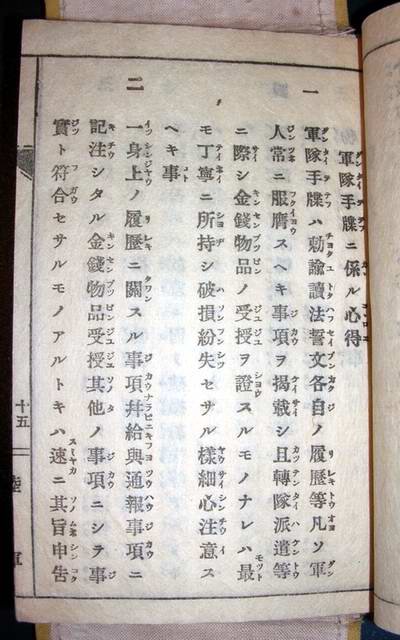 軍隊手牒ニ係ル心得
一 軍隊手牒ハ勅諭讀法誓文各自ノ履歷等凡ソ軍
人常ニ服膺スヘキ事項ヲ揭載シ且轉隊派遣等
ニ際シ金錢物品ノ受授ヲ證スルモノナレハ最
モ丁寧ニ所持シ破損紛失セサル樣細心注意ス
ヘキ事
二 一身上ノ履歷ニ關スル事項幷給與通報事項ニ
記注シタル金錢物品受授其他ノ事項ニシテ事
實ト符合セサルモノアルトキハ速ニ其旨申告
十五
陸軍